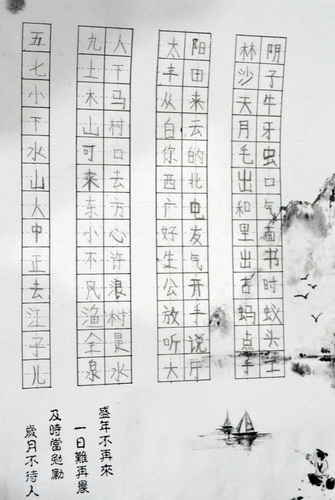 阴子牛牙虫口气面书时蚁头土
林沙天月毛出和里出古蚂点手
阳田来云的北电友气开手说厅
太丰从自你西广好生公放听大
人下马村口去方心许浪村是水
九土木山可来东小不风渔全泉
五七小下水山大中正去江子儿
盛年不再來
一日難再晨
及時當勉勵
歲月不待人